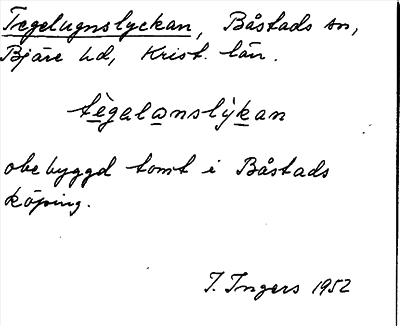 Tegelugnslyckan, Båstads sn,
Bjäre hd, Krist. län.
tègalanslỳkan
obebyggd tomt i Båstads
köping.
I. Ingers 1952